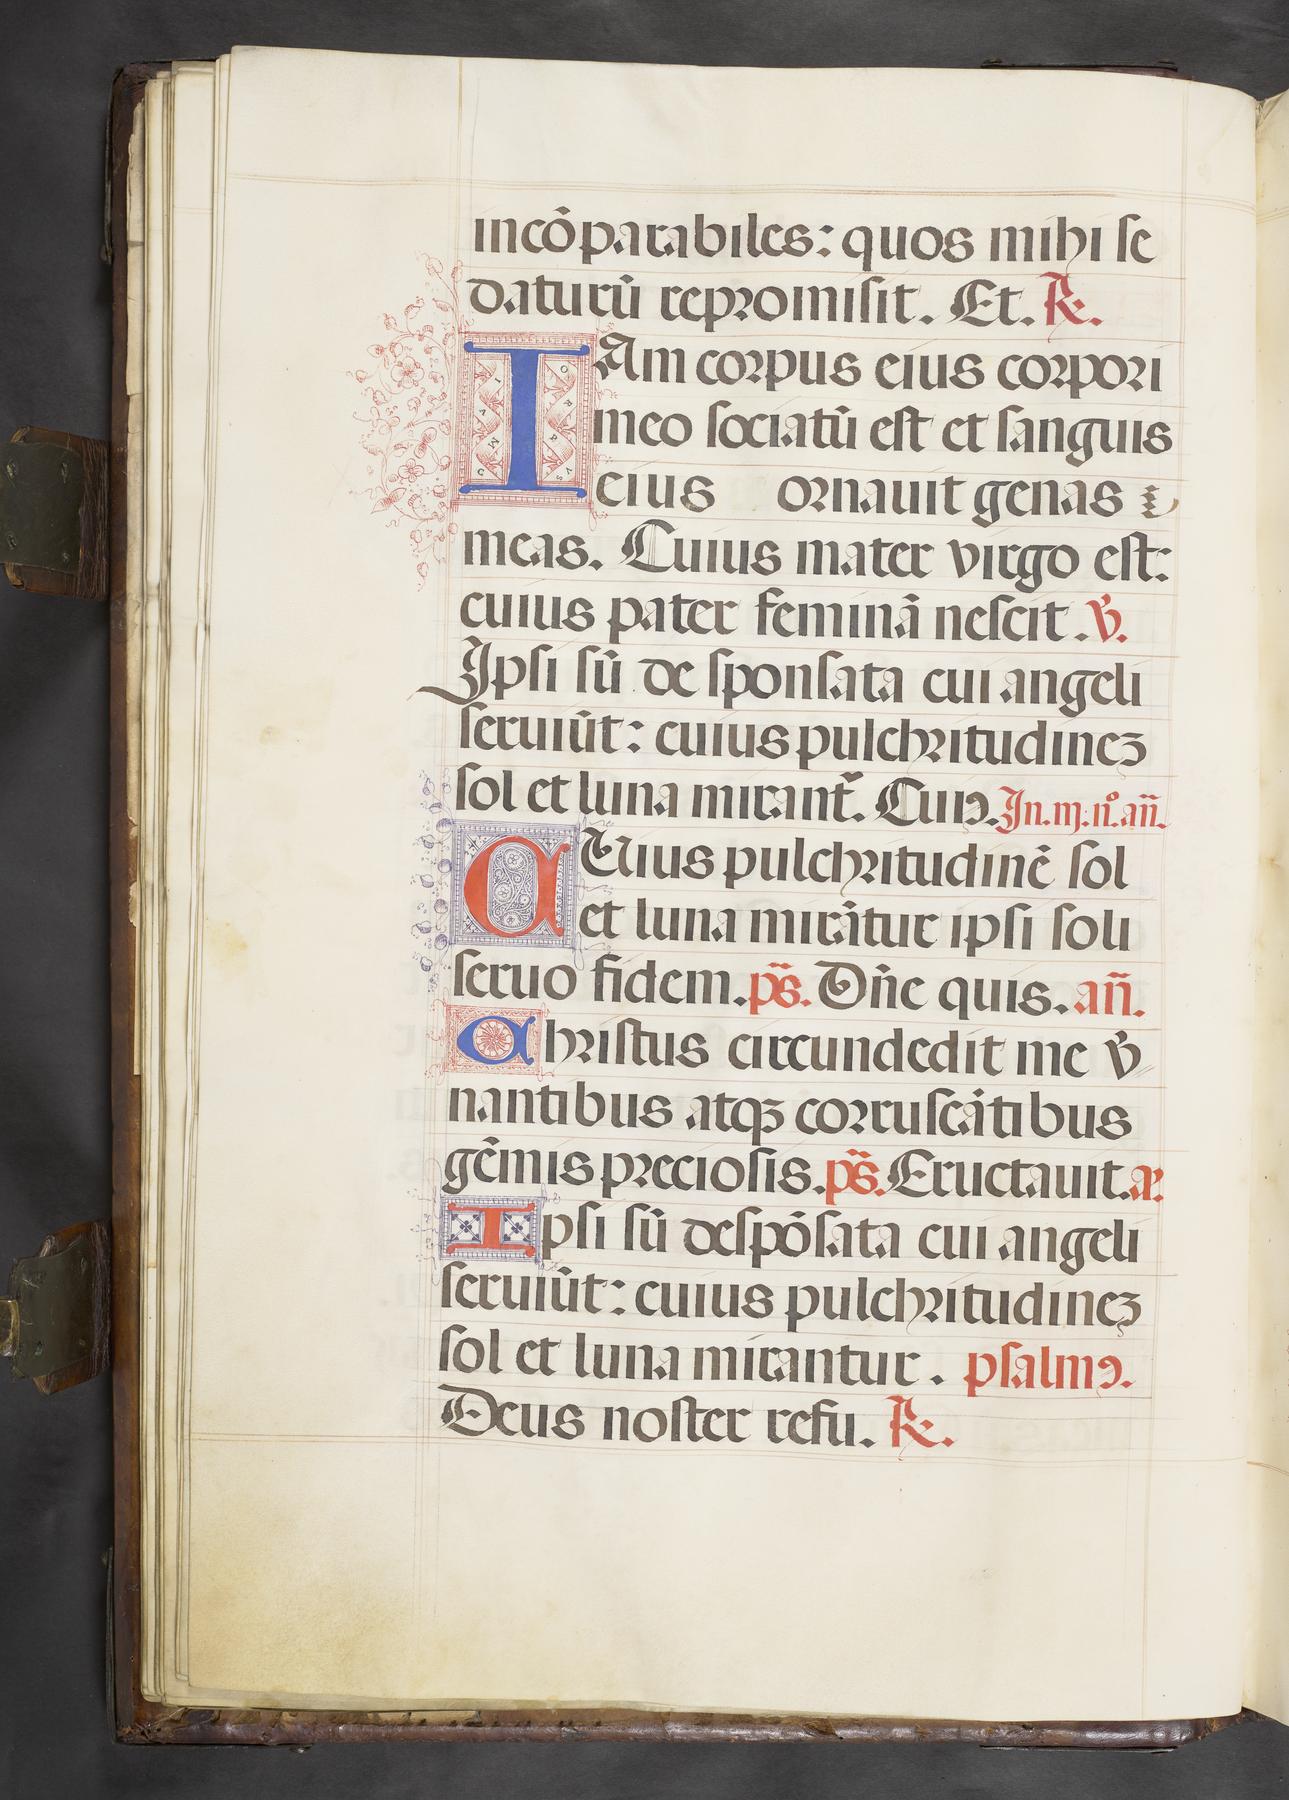 incōparabiles: quos mihi se
daturū repromisit. Et. R̷.
IAm corpus eius corpori
meo sociatū est et sanguis
eius ornauit genas
meas. Cuius mater virgo est:
cuius pater feminā nescit. v̄.
Ipsi sū de sponsata cui angeli
seruiūt: cuius pulchritudinez
sol et luna mirant᷑. Cuiꝯ. In. iij. n°. an̄.
CUius pulchritudinē sol
et luna mirātur ipsi soli
seruo fidem. ps̄. Dn̄e quis. an̄.
Christus circundedit me v̄
nantibus atqꝫ corruscātibus
gēmis preciosis. ps̄. Eructauit. a.
Ipsi sū despōsata cui angeli
seruiūt: cuius pulchritudinez
sol et luna mirantur. psalmꝯ.
Deus noster refu. R̷.